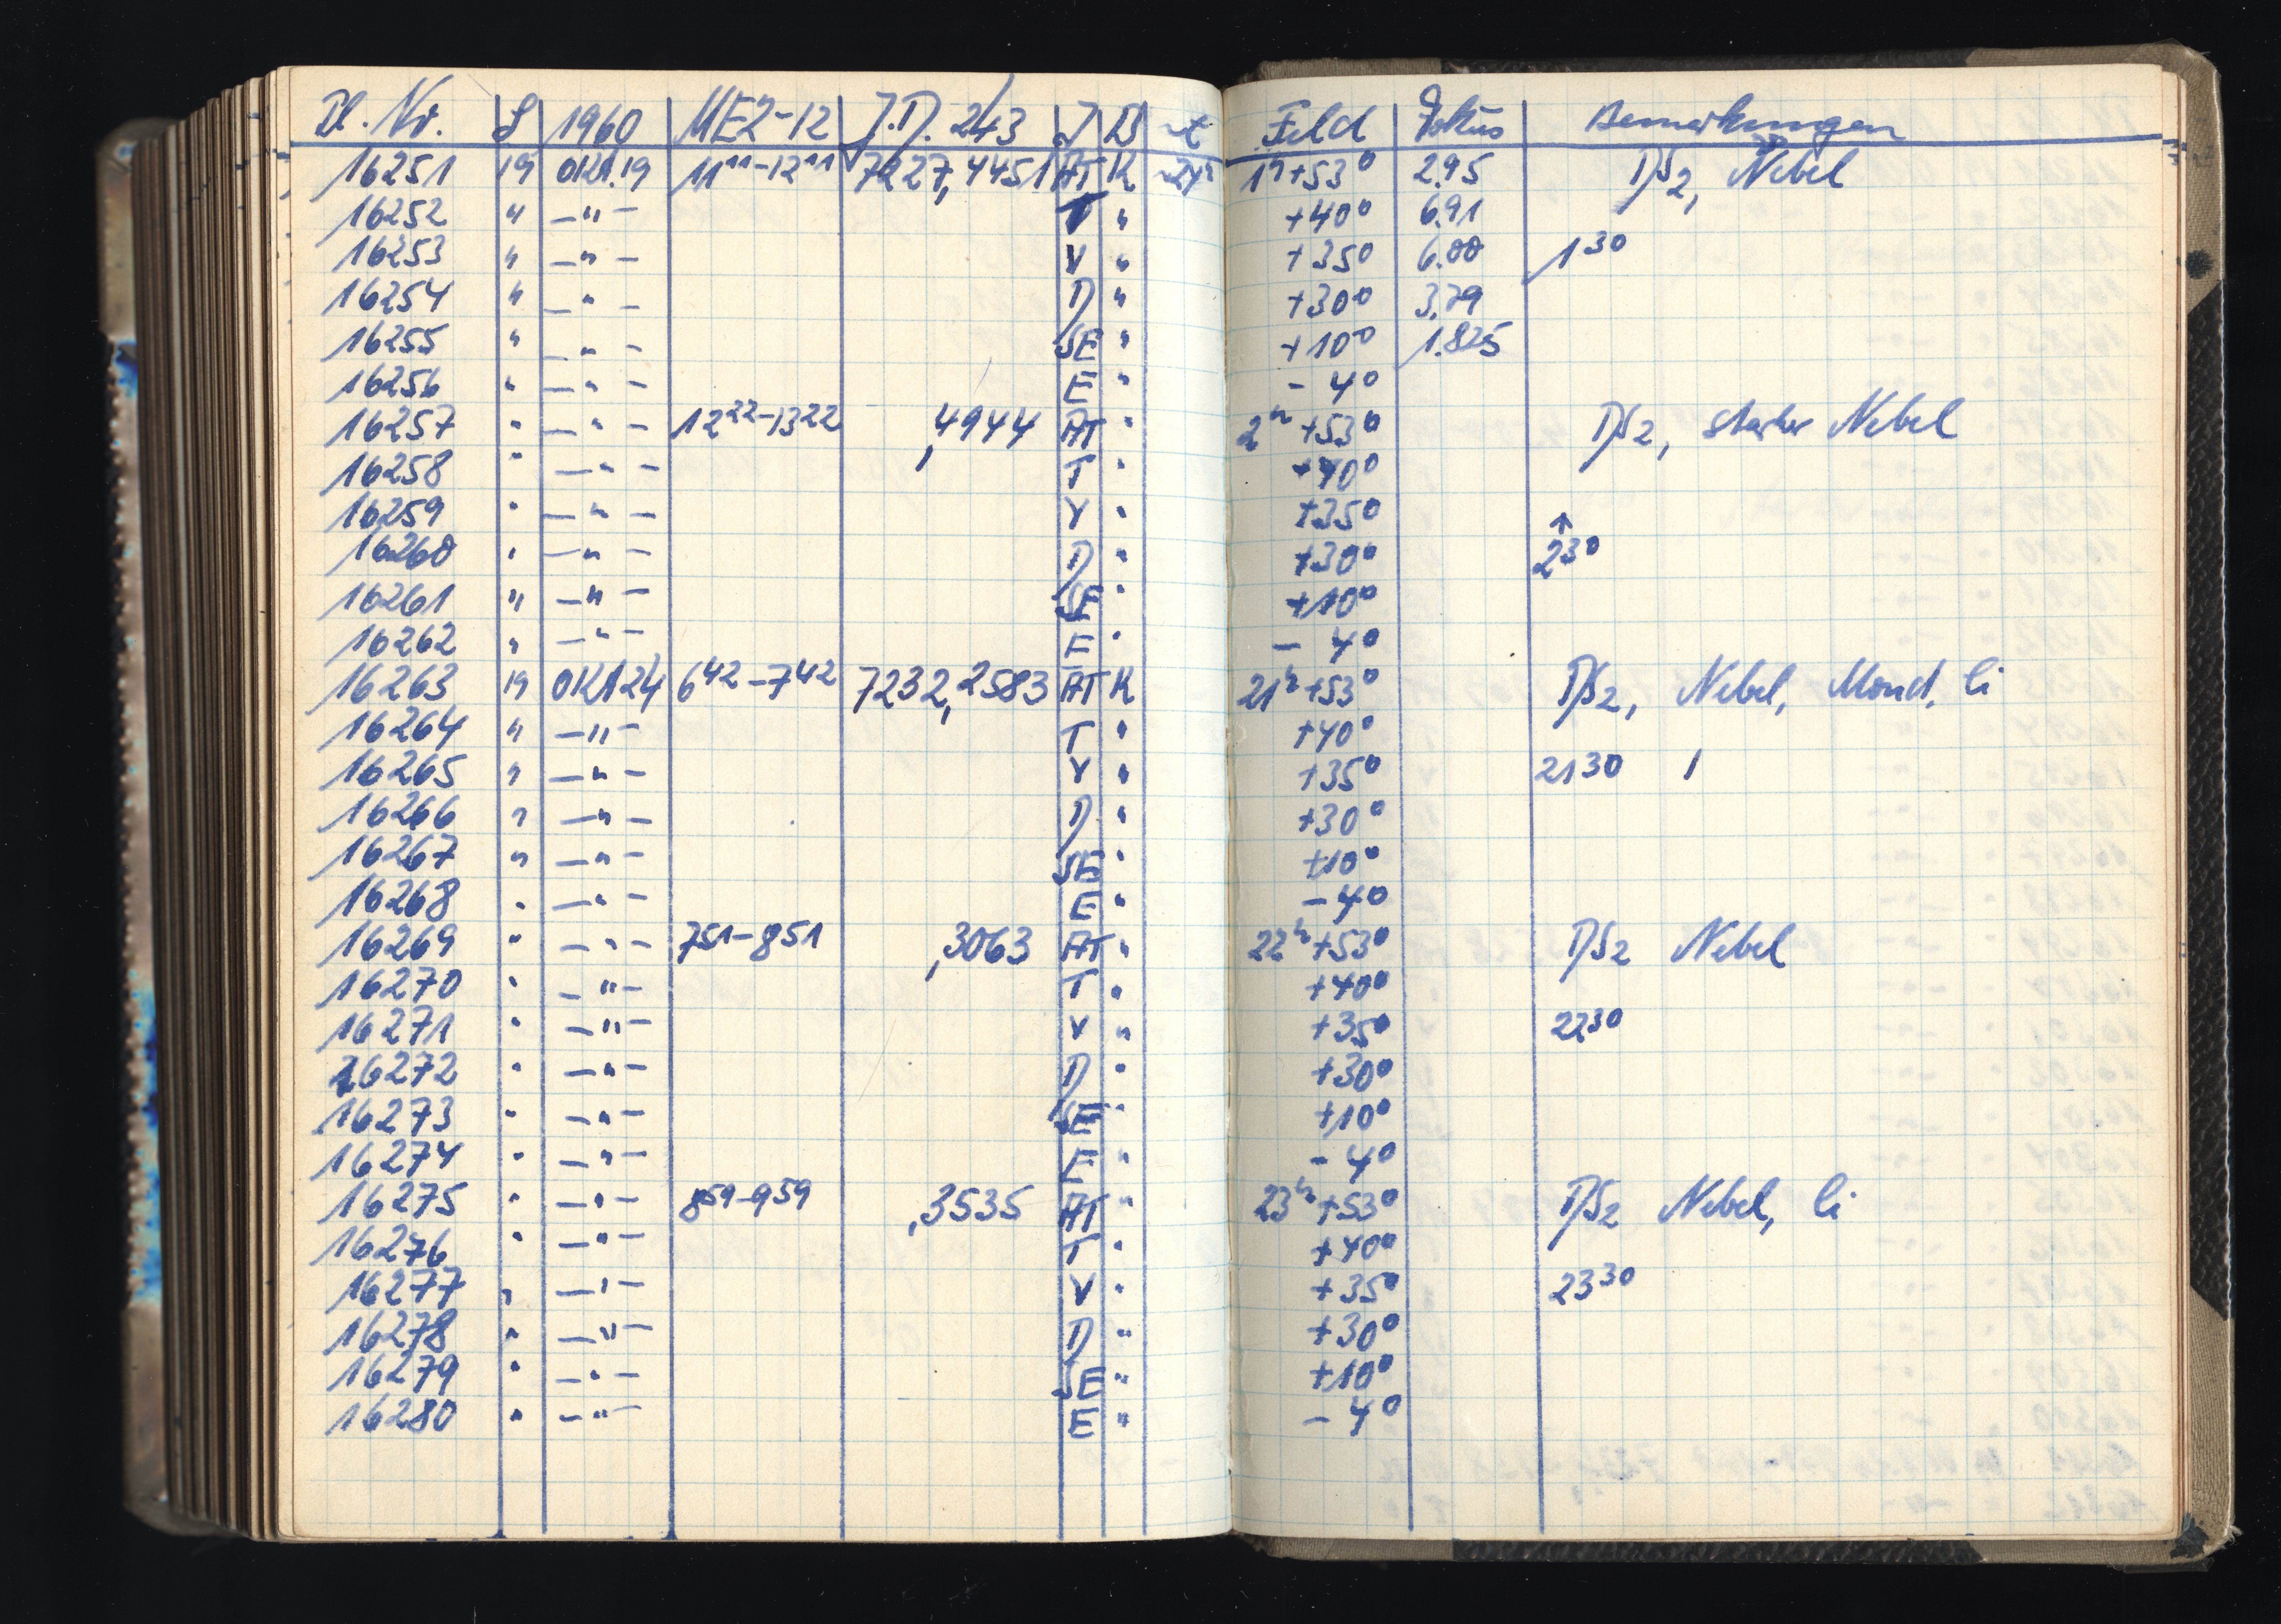 Pl. Nr. S 1960 MEZ-12 J.D. 243 J B t Feld Fokus Bemerkungen
16251 19 OKt.19 11 11-12 11 7227,4451 AT K 1h+53° 2.95 DS2, Nebel
16252 " -"- T " +40° 6.91
16253 " -"- V " +35° 6.00 1 30
16254 " -"- D " +30° 3.79
16255 " -"- SE " +10° 1.825
16256 " -"- E " - 4°
16257 " -"- 12 22-13 22 ,4944 AT " 2h+53° DS2, starker Nebel
16258 " -"- T " +40°
16259 " -"- V " +35° ↑
16260 " -"- D " +30° 2 30
16261 " -"- SE " +10°
16262 " -"- E " - 4°
16263 19 OKt24 6 42-7 42 7232,2583 AT K 21h+53° DS2, Nebel, Mond, li
16264 " -"- T " +40°
16265 " -"- V " +35° 21 30 /
16266 " -"- D " +30°
16267 " -"- SE " +10°
16268 " -"- E " - 4°
16269 " -"- 7 51-8 51 ,3063 AT " 22h+53° DS2 Nebel
16270 " -"- T " +40°
16271 " -"- V " +35° 22 30
16272 " -"- D " +30°
16273 " -"- SE " +10°
16274 " -"- E " - 4°
16275 " -"- 8 59-9 59 ,3535 AT " 23h+53° DS2 Nebel, li
16276 " -"- T " +40°
16277 " -"- V " +35° 23 30
16278 " -"- D " +30°
16279 " -"- SE " +10°
16280 " -"- E " - 4°